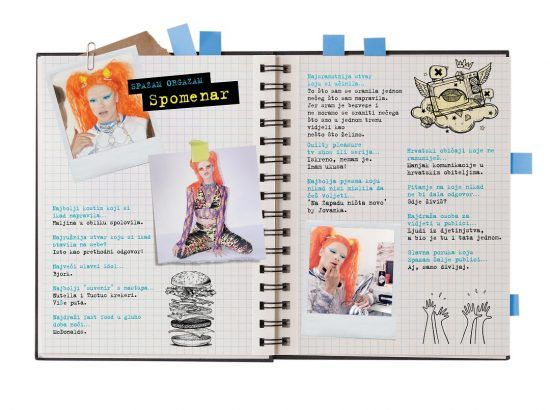 SPAZAM ORGAZAM
Spomenar
Najbolji kostim koji si
ikad napravila...
Maljina u obliku spolovila.
Najružnija stvar koju si ikad
stavila na sebe?
Isto kao prethodni odgovor!
Najveći slavni idol...
Bjork.
Najbolji 'suvenir' s nastupa...
Nutella i Tuctuc krekeri.
Više puta.
Najdraži fast food u gluho
doba noći...
McDonalds.
Najsramotnija stvar
koju si učinila...
To što sam se sramila jednom
nečeg što sam napravila.
Jer sram je bezveze i
ne moramo se sramiti nečega
što smo u jednom trenu
vidjeli kao
nešto što želimo.
Guilty pleasure
tv show ili serija...
Iskreno, nemam je.
Imam ukusa!
Najbolja pjesma koju
nikad nisi mislila da
ćeš voljeti.
'Na Zapadu ništa novo'
by Jovanka.
Hrvatski običaji koje ne
razumiješ...
Manjak komunikacije u
hrvatskim obiteljima.
Pitanje na koje nikad
ne bi dala odgovor...
Gdje živiš?
Najdraža osoba za
vidjeti u publici...
Ljudi iz djetinjstva,
a bio je tu i tata jednom.
Glavna poruka koju
Spazam šalje publici...
Aj, samo divljaj.